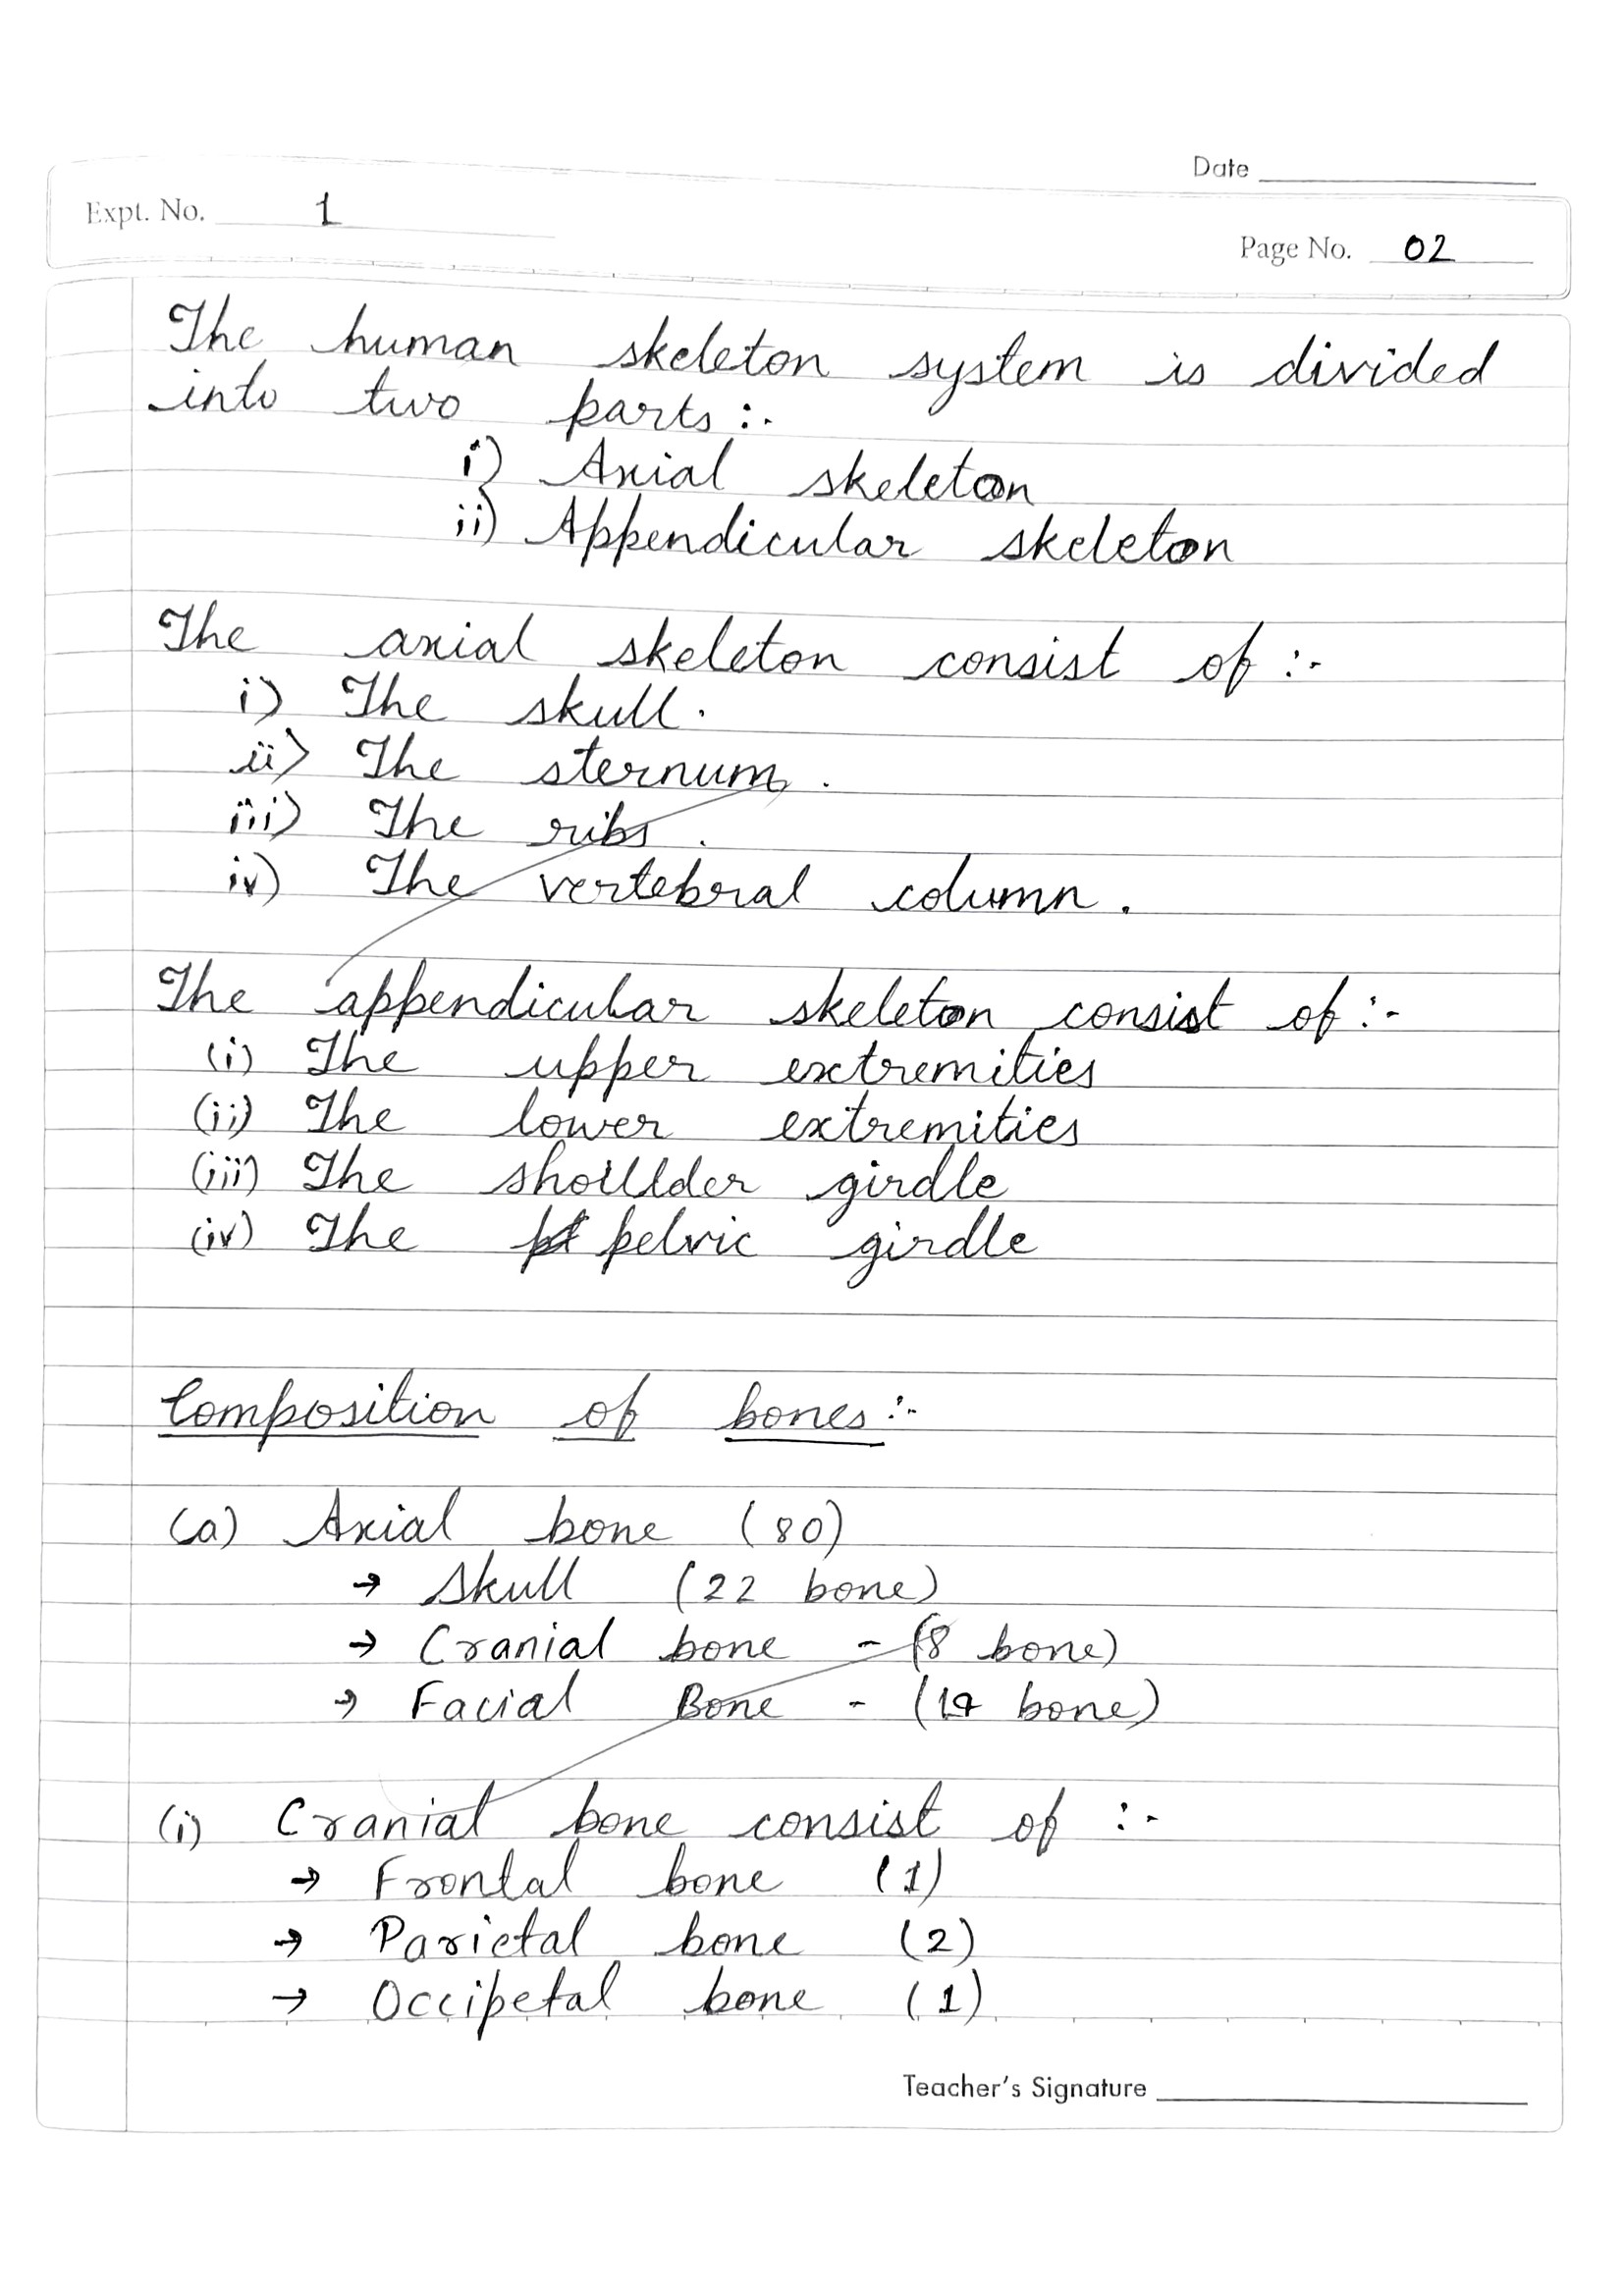 Date
Expt. No. 1
Page No. 02
The human skeleton system is divided
into two parts :-
i) Axial skeleton
ii) Appendicular skeleton
The axial skeleton consist of :-
i) The skull.
ii) The sternum.
iii) The ribs.
iv) The vertebral column.
The appendicular skeleton consist of :-
(i) The upper extremities
(ii) The lower extremities
(iii) The shoulder girdle
(iv) The pelvic girdle
Composition of bones :-
(a) Axial bone (80)
→ Skull (22 bone)
→ Cranial bone - (8 bone)
→ Facial Bone - (14 bone)
(i) Cranial bone consist of :-
→ Frontal bone (1)
→ Parietal bone (2)
→ Occipetal bone (1)
Teacher's Signature